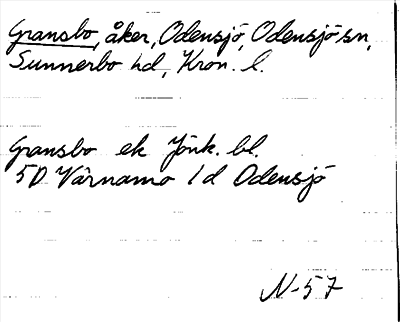 Gransbo, åker, Odensjö, Odensjö sn,
Sunnerbo hd, Kron. l.
Gransbo ek Jönk. bl.
5D Värnamo 1d Odensjö
N-57